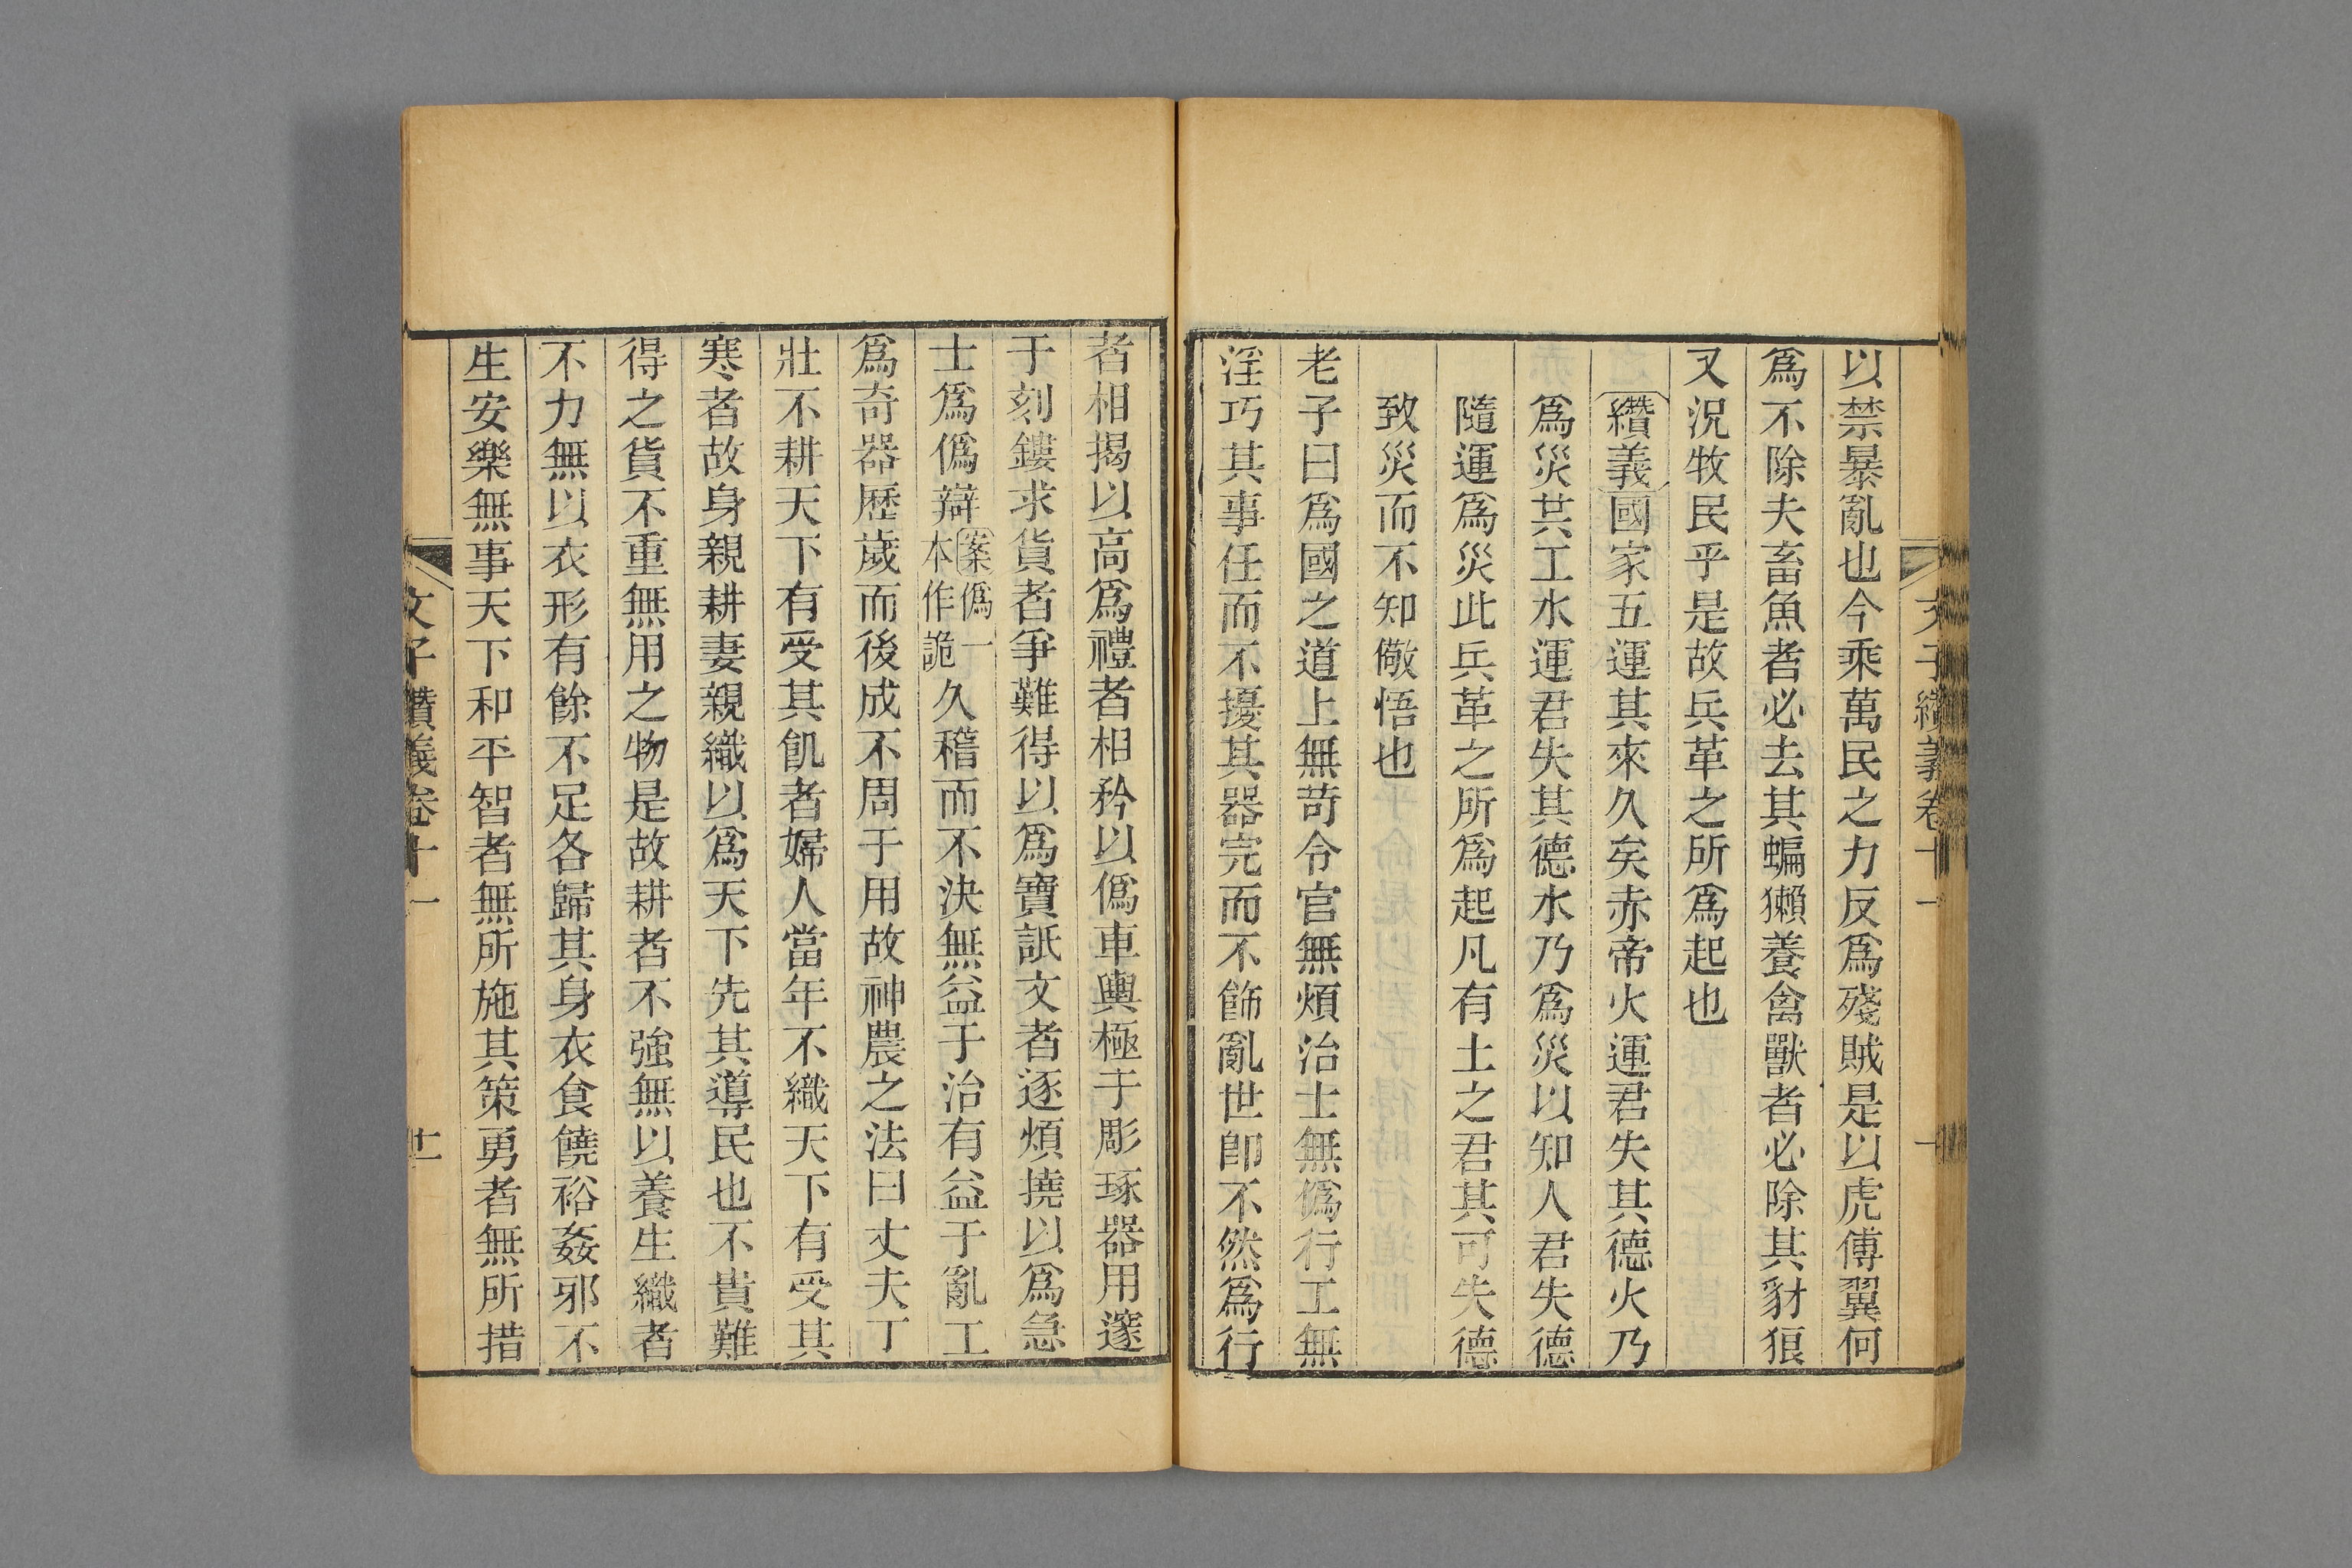 文子纘義卷十一
以禁暴亂也今乘萬民之力反爲殘賊是以虎傅翼何
爲不除夫畜魚者必去其蝙獺養禽獸者必除其豺狼
又況牧民乎是故兵革之所爲起也
纘義國家五運其來久矣赤帝火運君失其德火乃
爲災共工水運君失其德水乃爲災以知人君失德
隨運爲災此兵革之所爲起凡有土之君其可失德
致災而不知儆悟也
老子曰爲國之道上無苛令官無煩治士無僞行工無
淫巧其事任而不擾其器完而不飾亂世即不然爲行
者相揭以高爲禮者相矜以僞車輿極于彫琢器用邃
于刻鏤求貨者爭難得以爲寶詆文者逐煩撓以爲急
士爲僞辯案僞一本作詭久稽而不決無益于治有益于亂工
爲奇器歷歲而後成不周于用故神農之法曰丈夫丁
壯不耕天下有受其飢者婦人當年不織天下有受其
寒者故身親耕妻親織以爲天下先其導民也不貴難
得之貨不重無用之物是故耕者不強無以養生織者
不力無以衣形有餘不足各歸其身衣食饒裕姦邪不
生安樂無事天下和平智者無所施其策勇者無所措
文子纘義卷十一